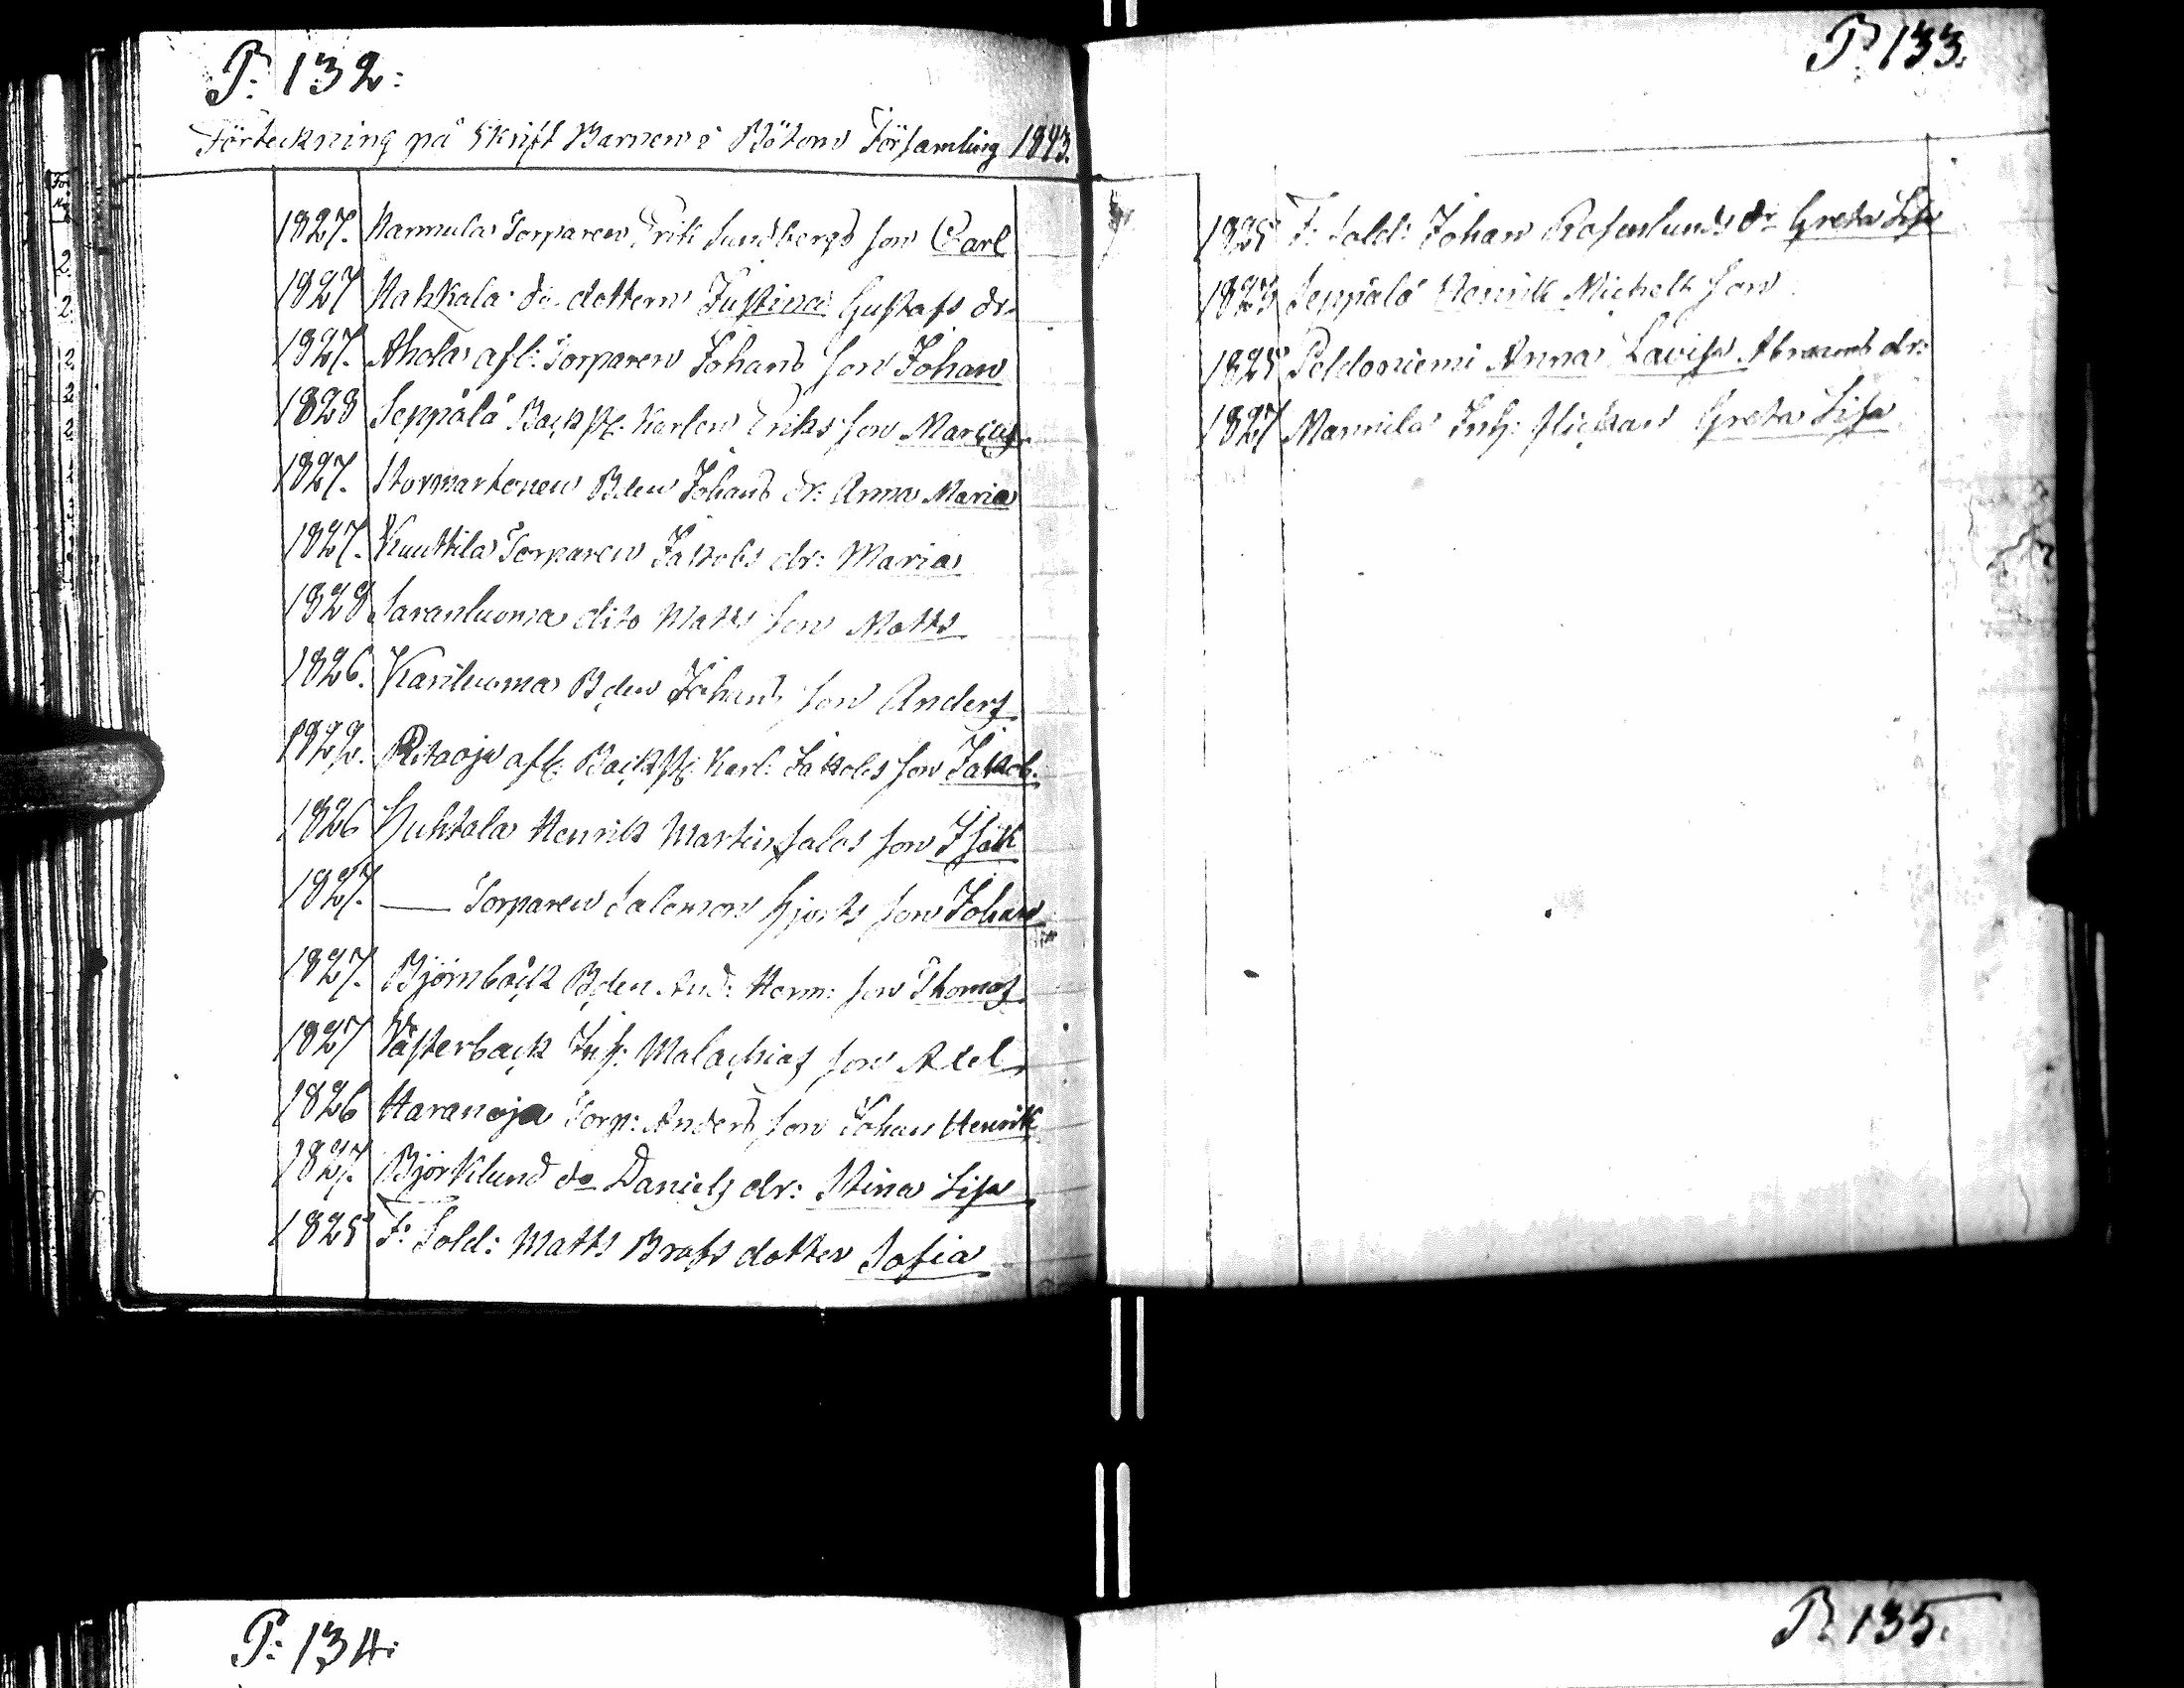 P. 132:
Förteckning på Skrift Barnen i Bötom Församling 1843.
1827. Karmula Torparen Erik Sundbergs son Carl
1827 Nahkala do dottern Justina Gustafs dr.
1827. Ahola afl: Torparen Johans son Johan
1828 Seppälä Backst. Karlen Eriks son Marcus.
1827. Stormartonen Bden Johans dr: Anna Maria
1827. Knuttila Torparen Jakobs dr: Maria
1828 Savanluoma dito Matts son Matts
1826. Kariluoma Bden Johans son Anders
Ritaoja afl. Backst. Karl: Jakobs son Jakob.
1826 Huhtala Henrik Martinsalos son Isak
1827. — Torparen Salomon Hjorts son Johan
1827. Björnbäck Bden And: Herm: son Thomas
1827 Västerback Inh: Malachias son Axel
1826 Haranoja Torp: Anders son Johan Henrik
1827. Björklund do Daniels dr: Stina Lisa
1825 F: Sold: Matts Brafs dotter Sofia
P. 133.
1825 F: Sold: Johan Rosenlunds dr Greta Lisa
Seppälä Henrik Michels son
1825 Peldoniemi Anna Lovisa Abrams dr:
1827 Mannila Inh: flickan Greta Lisa
P: 134:
P. 135.